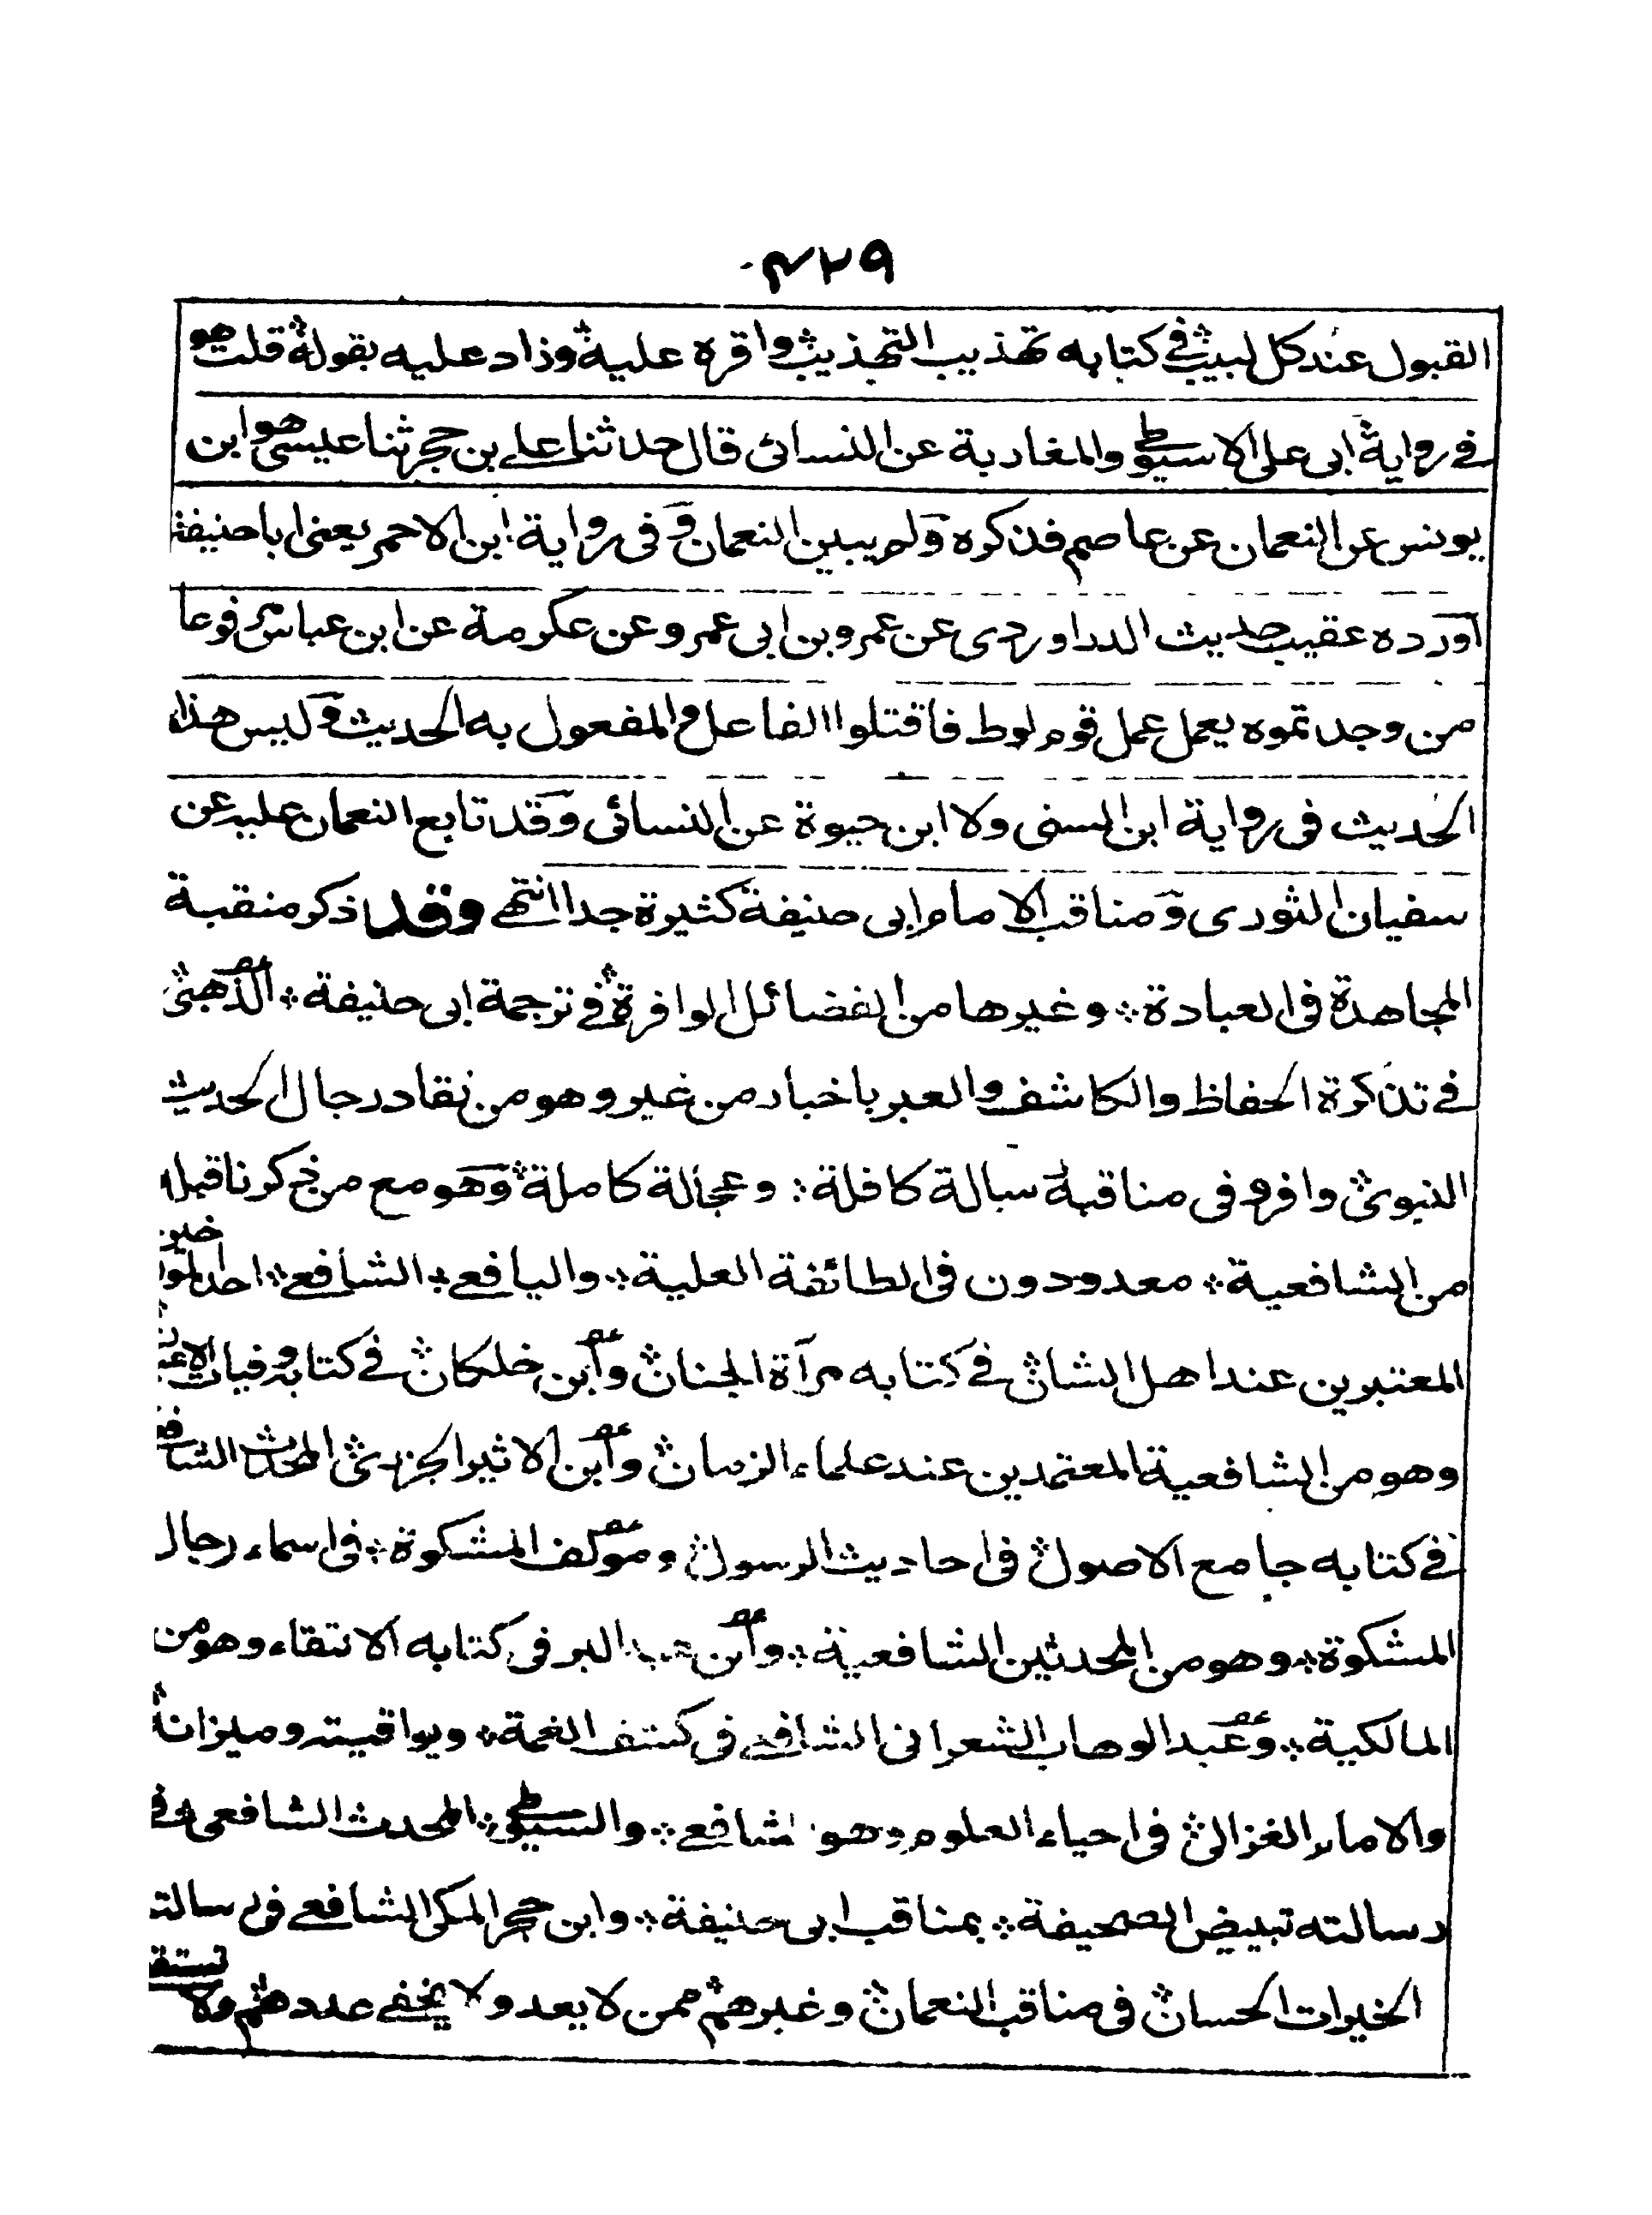 ۴۲۹
القبول عند كل لبيب في كتابه تهذيب التهذيب واقره عليه وزاد عليه بقوله قلت هو
في رواية ابى على الاسيوطي والمغاربة عن النسائى قال حدثنا على بن حجر ثنا عيسى هو ابن
يونس عن النعمان عن عاصم فذكره ولم يبين النعمان وفى رواية ابن الاحمر يعنى ابا حنيفة
اورده عقيب حديث الدراوردى عن عمرو بن ابى عمرو عن عكرمة عن ابن عباس مرفوعا
من وجدتموه يعمل عمل قوم لوط فاقتلوا الفاعل والمفعول به الحديث وليس هذا
الحديث فى رواية ابن السنى ولا ابن حيوة عن النسائى وقد تابع النعمان عليه عن
سفيان الثورى ومناقب الامام ابى حنيفة كثيرة جدا انتهى وقد ذكر منقبة
المجاهدة فى العبادة وغيرها من الفضائل الوافرة في ترجمة ابى حنيفة الذهبى
في تذكرة الحفاظ والكاشف والعبر باخبار من غبر وهو من نقاد رجال الحديث
النبوى وافرد فى مناقبه رسالة كافلة وعجالة كاملة وهو مع من ذكرنا قبله
من الشافعية معدودون فى الطائفة العلية واليافعي الشافعي احد المؤرخين
المعتبرين عند اهل الشان في كتابه مرآة الجنان وابن خلكان في كتابه وفيات الاعيان
وهو من الشافعية المعتمدين عند علماء الزمان وابن الاثير الجزرى المحدث الشافعي
في كتابه جامع الاصول فى احاديث الرسول ومؤلف المشكوة فى اسماء رجال
المشكوة وهو من المحدثين الشافعية وابن عبد البر فى كتابه الانتقاء وهو من
المالكية وعبد الوهاب الشعرانى الشافعي فى كشف الغمة ويواقيته وميزانه
والامام الغزالى فى احياء العلوم وهو شافعي والسيوطي المحدث الشافعى في
رسالته تبييض الصحيفة بمناقب ابى حنيفة وابن حجر المكى الشافعي فى رسالته
الخيرات الحسان فى مناقب النعمان وغيرهم ممن لا يعد ولا يخفى عددهم ولا